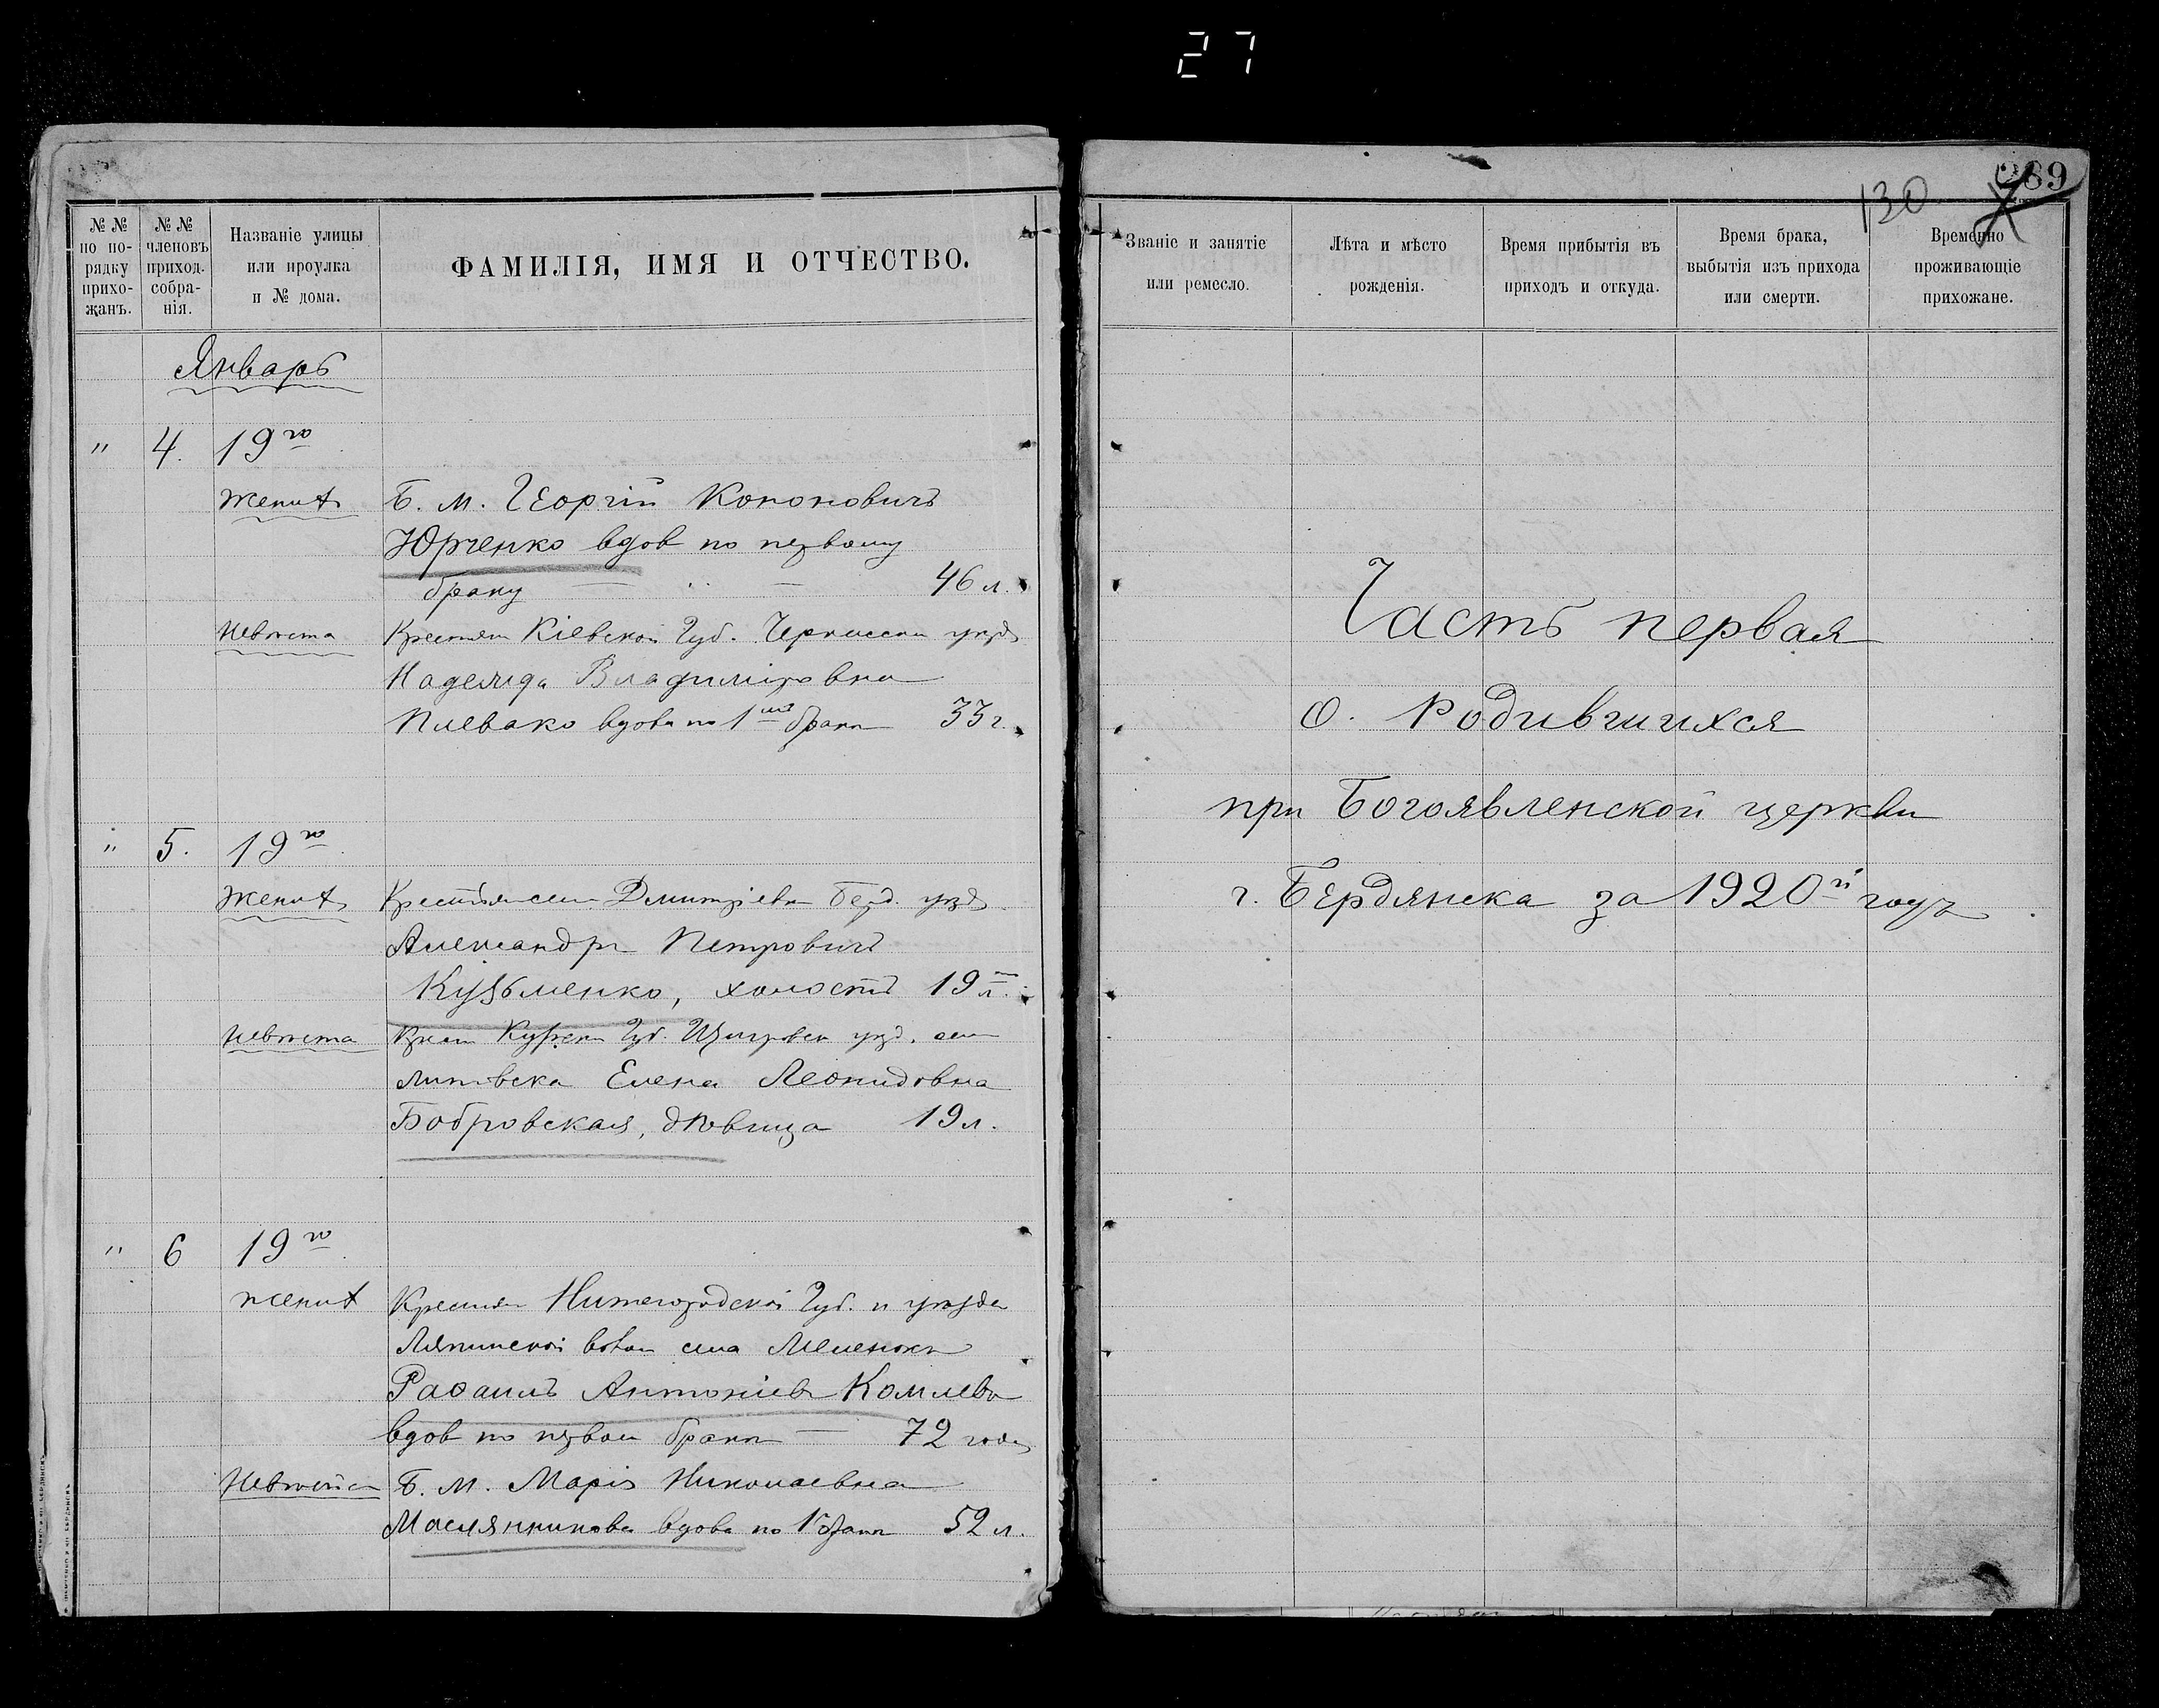 27
№ №
по по-
рядку
прихо-
жанъ.
№ №
членовъ
приход.
собра-
нія.
Названіе улицы
или проулка
и № дома.
ФАМИЛІЯ, ИМЯ И ОТЧЕСТВО.
Январь
" 4. 19го
Жених Б. м. Георгій Кононовичъ
Юрченко вдов по первому
браку — " — 46 л.
Невѣста Крестьян Кіевской Губ. Черкасск уезд
Надежда Владиміровна
Плевако вдова по 1му браку 33 г.
" 5. 19го
Жених Крестьян сел. Дмитріевки Берд. уезд
Александръ Петровичъ
Кузьменко, холостъ 19 л.
Невѣста Крест Курск Губ. Щигровск уезд. сел
Елена Леонидовна
Бобровская, дѣвица 19 л.
" 6 19го
жених Крестьян Нижегородской Губ. и уезда
волос села
Рафаилъ Антоніев Комлевъ
вдов по первом браки — 72 года
Невѣста Б. М. Марія Николаевна
Маслянникова вдова по 1 браки 52 л.
269
130
Званіе и занятіе
или ремесло.
Лѣта и мѣсто
рожденія.
Время прибытія въ
приходъ и откуда.
Время брака,
выбытія изъ прихода
или смерти.
Временно
проживающіе
прихожане.
Часть первая
о. Родившихся
при Богоявленской церкви
г. Бердянска за 1920й годъ